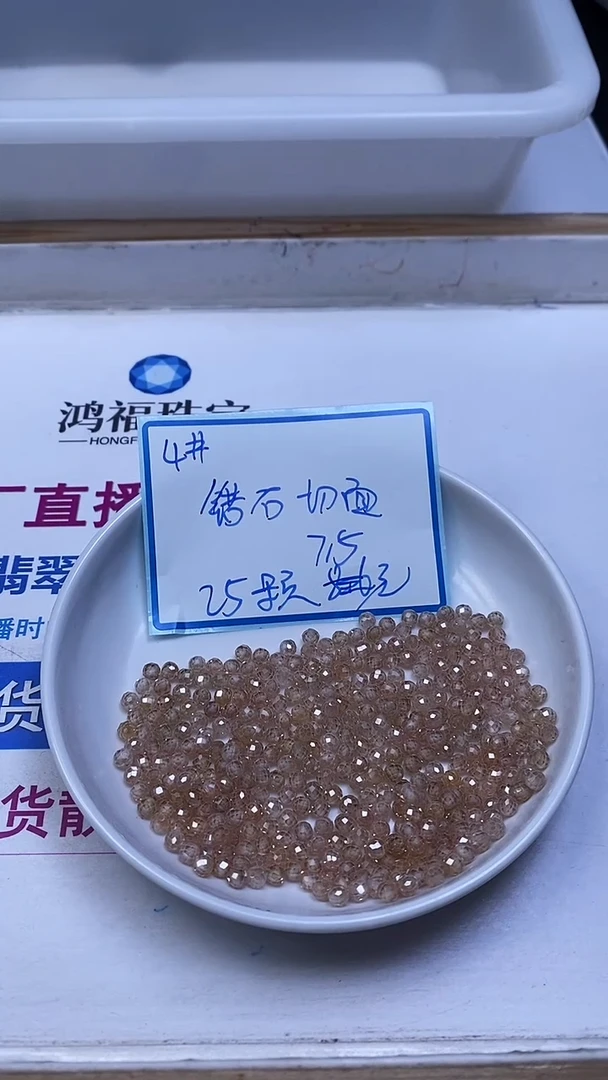 鸿福珠宝
HONGF
厂直播
翡翠
播时
货
货散
4#
锆石切面
7.5
25颗 元